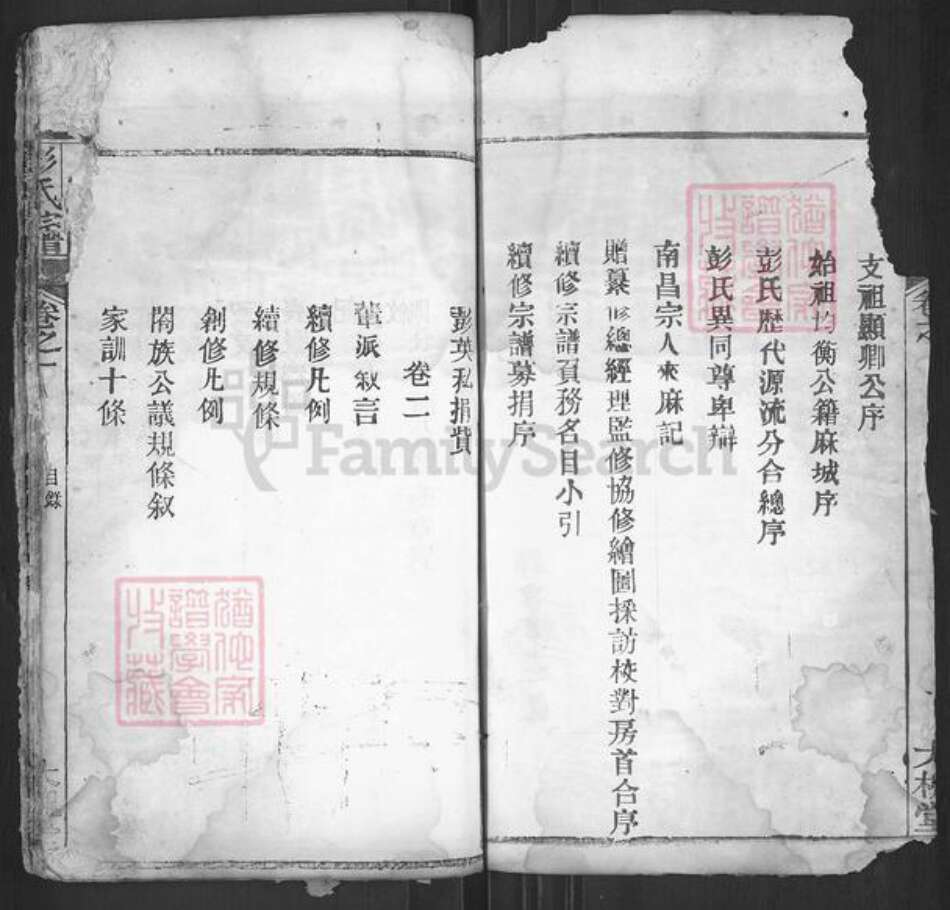 支祖顯卿公序
始祖均衡公籍麻城序
彭氏歷代源流分合總序
彭氏異同尊卑辯
南昌宗人來麻記
贈纂修總經理監修協修繪圖採訪校對房首合序
續修宗譜頁務名目小引
續修宗譜募捐序
彭英私捐費
卷二
華派叙言
續修凡例
續修規條
創修凡例
閤族公議規條叙
家訓十條
彭氏宗譜
卷之一
目錄
FamilySearch